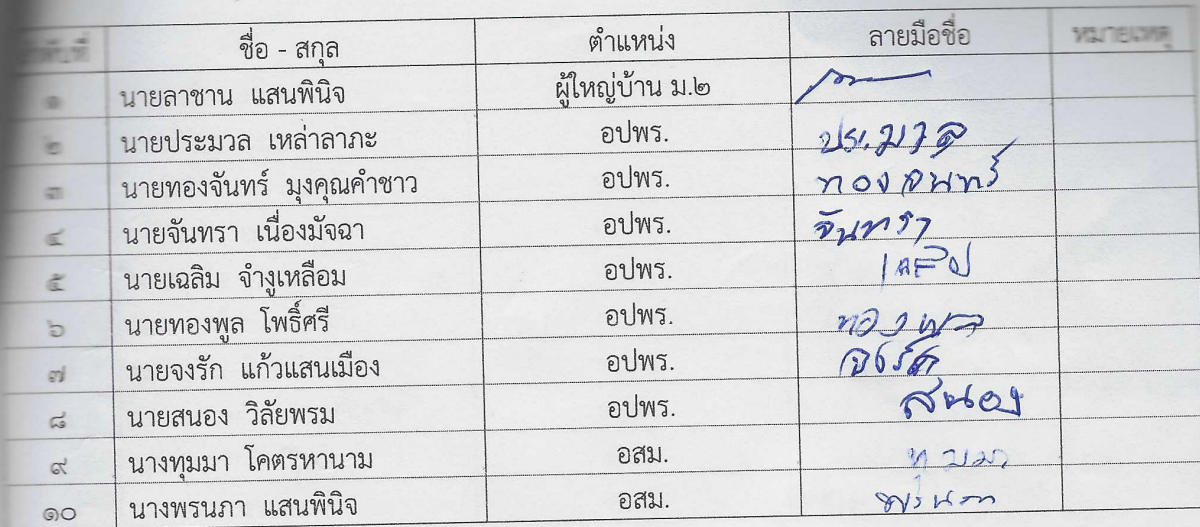 ลำดับที่ ชื่อ - สกุล ตำแหน่ง ลายมือชื่อ หมายเหตุ
๑ นายลาชาน แสนพินิจ ผู้ใหญ่บ้าน ม.๒
๒ นายประมวล เหล่าลาภะ อปพร. ประมวล
๓ นายทองจันทร์ มุงคุณคำชาว อปพร. ทองจันทร์
๔ นายจันทรา เนื่องมัจฉา อปพร. จันทรา
๕ นายเฉลิม จำงูเหลือม อปพร.
๖ นายทองพูล โพธิ์ศรี อปพร. ทองพูล
๗ นายจงรัก แก้วแสนเมือง อปพร. จงรัก
๘ นายสนอง วิลัยพรม อปพร. สนอง
๙ นางทุมมา โคตรหานาม อสม. ทุมมา
๑๐ นางพรนภา แสนพินิจ อสม. พรนภา